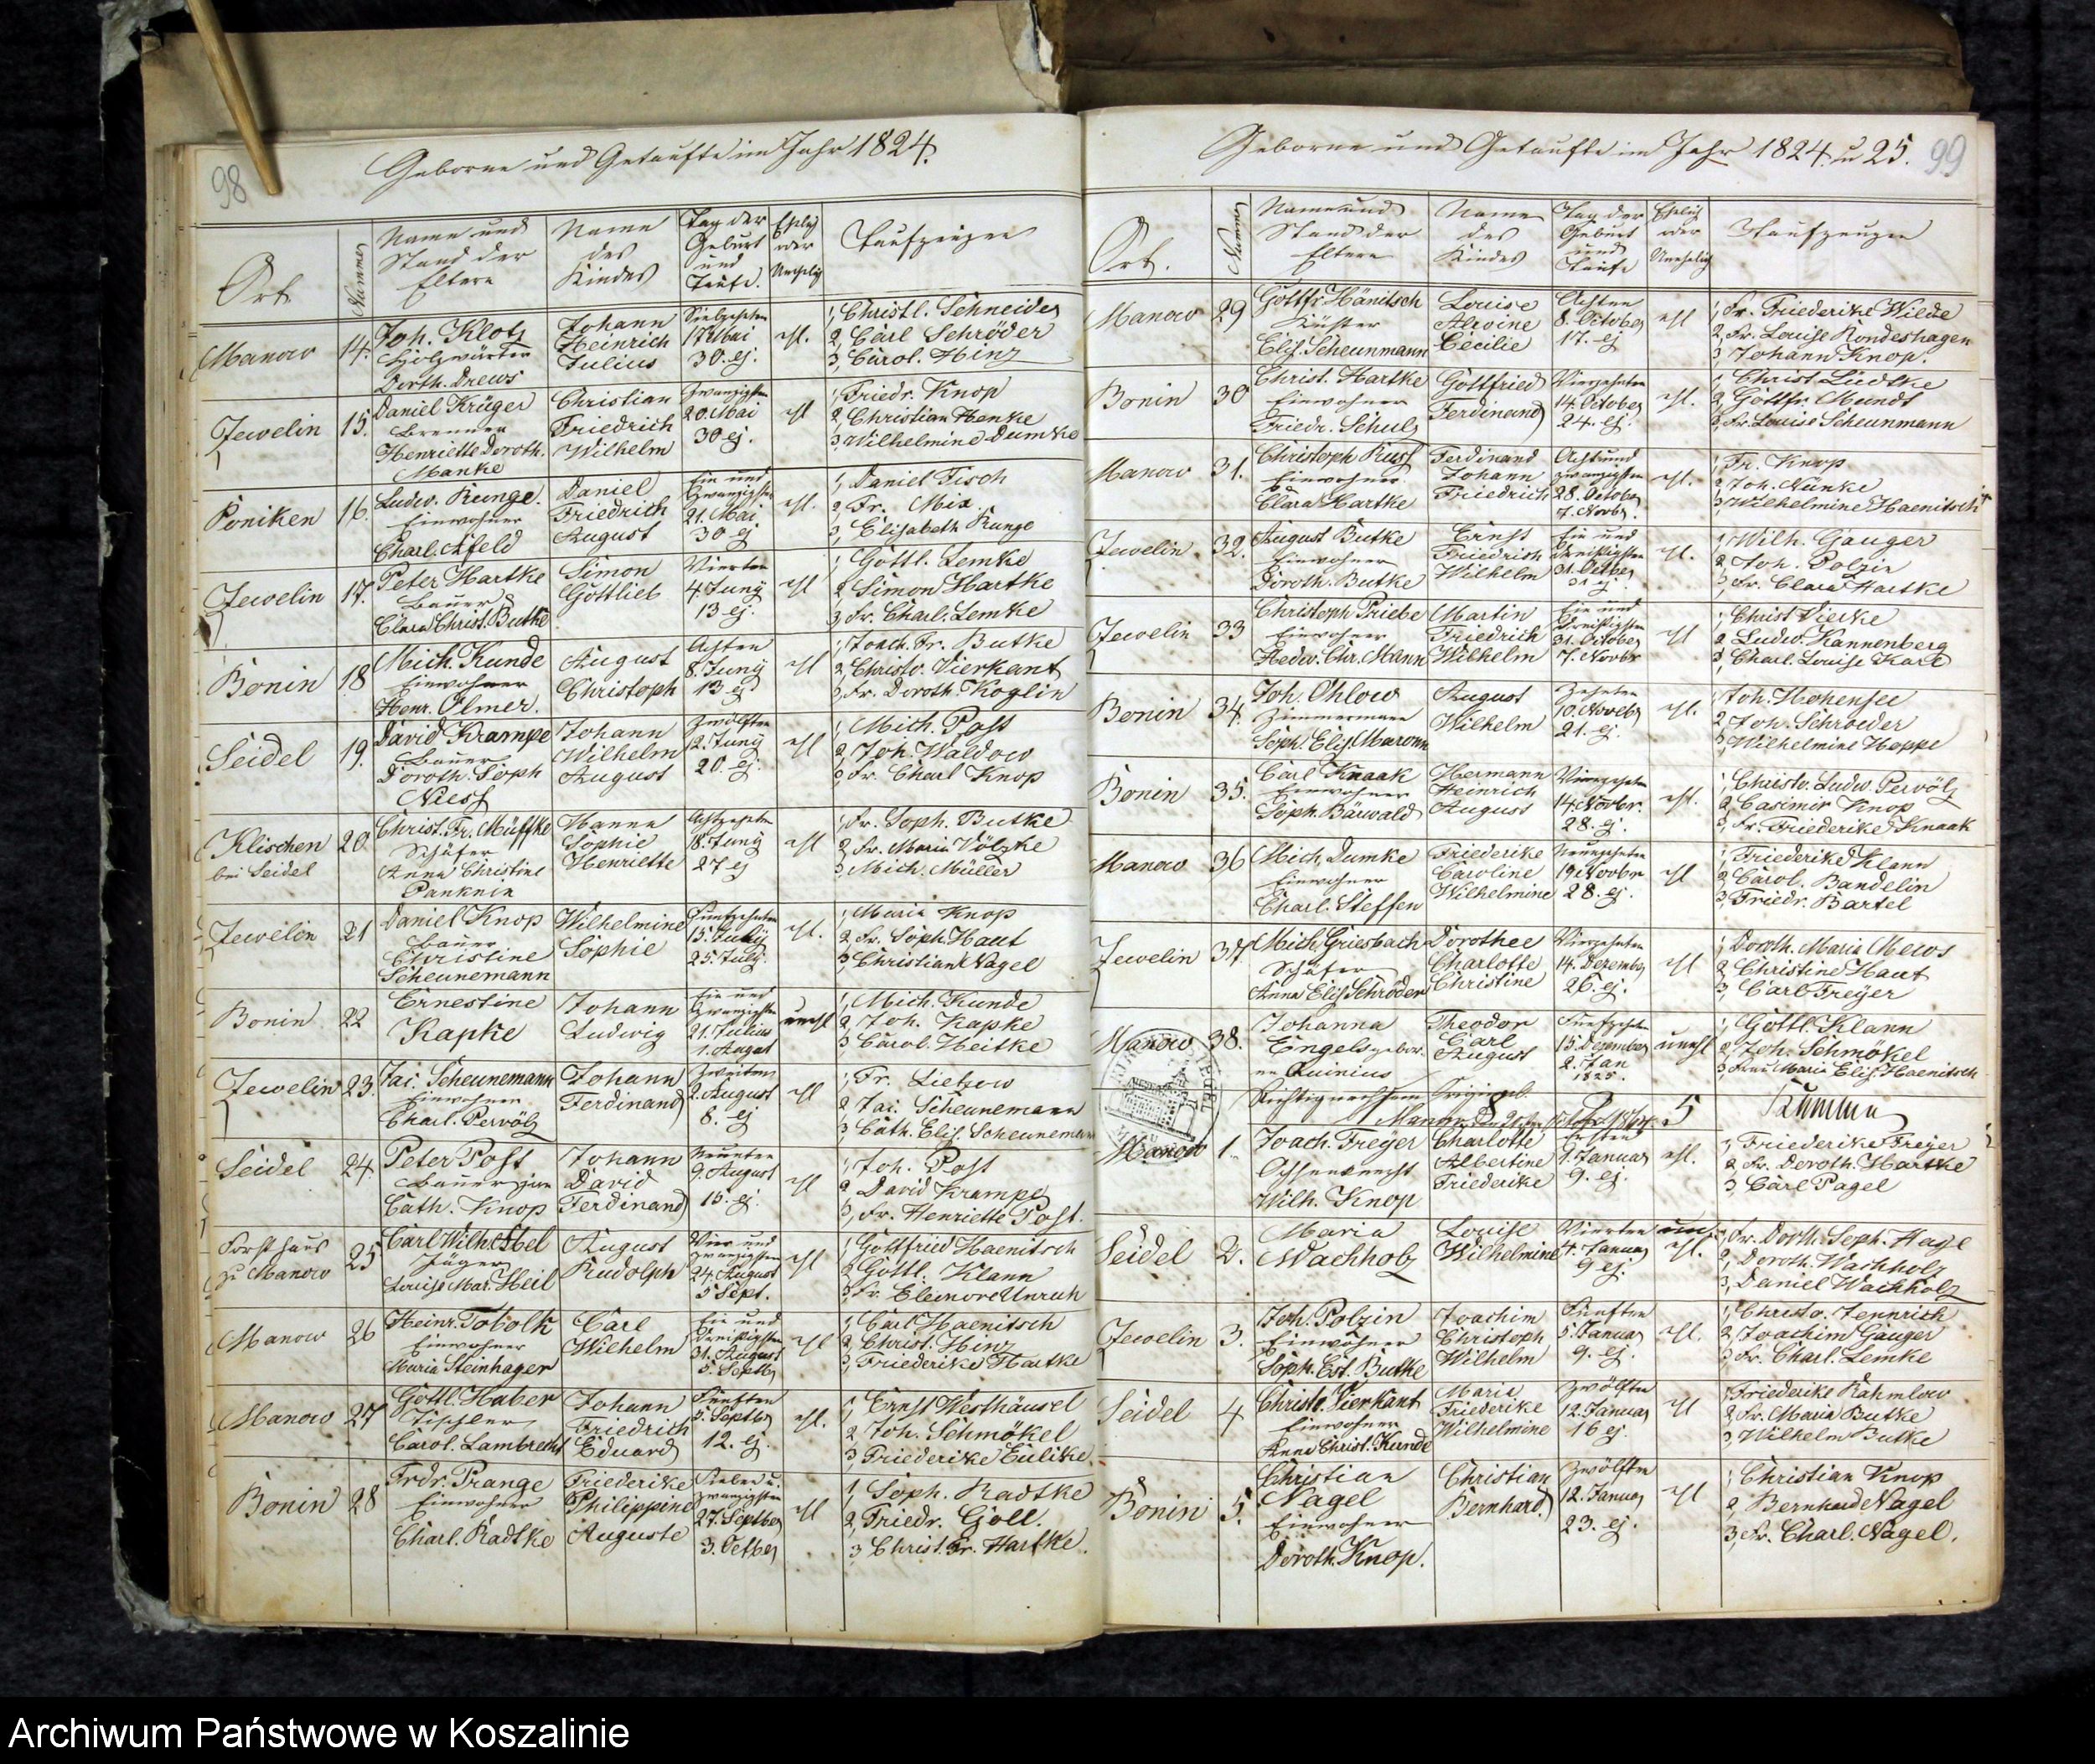 98
Geborne und Getaufte im Jahr 1824.
Ort
Nummer
Name und Stand der Eltern
Name des Kindes
Tag der Geburt und Taufe.
Ehelich oder Unehelich
Taufzeugen
Manow 14.
Joh. Klotz
Holzwärter
Dorth. Drews
Johann
Heinrich
Julius
Siebzehnten
17 Mai
30. ej.
ehl.
1, Christl. Schneider
2, Carl Schröder
3, Carol. Hinz
Jewelin 15.
Daniel Krüger
Brenner
Henriette Doroth.
Manke
Christian
Friedrich
Wilhelm
Zwanzigsten
20. Mai
30 ej.
ehl
1, Friedr. Knop
2, Christian Hanke
3, Wilhelmine Dumke
Poniken 16.
Ludw. Runge.
Einwohner
Charl. Afeld
Daniel
Friedrich
August
Ein und
Zwanzigsten
21. Mai
30 ej
ehl.
1, Daniel Tisch
2, Fr. Mix
3, Elisabeth Runge
Jewelin 17.
Peter Hartke
Bauer
Clara Christ. Butke
Simon
Gottlieb
Vierten
4. Juny
13 ej.
ehl
1, Gottl. Lemke
2, Simon Hartke
3, Fr. Charl. Lemke
Bonin 18
Mich. Kunde
Einwohner
Henr. Olmer.
August
Christoph
Achten
8. Juny
13 ej
ehl
1, Joach. Fr. Butke
2, Christo. Vierkant
3, Fr. Doroth. Koglin
Seidel 19.
David Krampe
Bauer
Doroth. Soph
Niess
Johann
Wilhelm
August
Zwölften
12. Juny
20. ej.
ehl
1, Mich. Post
2, Joh. Waldow
3, Fr. Charl Knop
Klischen 20
bei Seidel
Christ. Fr. Müffke
Schäfer
Anna Christine
Panknin
Hanna
Sophie
Henriette
Achtzehnten
18. Juny
27 ej
ehl
1, Fr. Soph. Butke
2, Fr. Maria Völzke
3, Mich. Müller
Jewelin 21
Daniel Knop
Bauer
Christine
Scheunemann
Wilhelmine
Sophie
Fünfzehnten
15. July
25. July.
ehl.
1, Maria Knop
2, Fr. Soph. Haut
3, Christian Nagel
Bonin 22
Ernestine
Kapke
Johann
Ludwig
Ein und
Zwanzigsten
21. Julius
1. August
unehl
1, Mich. Kunde
2, Joh. Kapke
3, Carol. Heitke
Jewelin 23.
Jac. Scheunemann
Einwohner
Charl. Pervölz
Johann
Ferdinand
Zweiten
2. August
8. ej
ehl
1, Fr. Lietzow
2, Jac. Scheunemann
3, Cath. Elis. Scheunemann
Seidel 24.
Peter Post
Bauer jun
Cath. Knop
Johann
David
Ferdinand
Neunten
9. August
15. ej.
ehl
1, Joh. Post
2, David Krampe
3, Fr. Henriette Post.
Forsthaus 25
zu Manow
Carl Wilh. Abel
Jäger
Louise Mar. Heil
August
Rudolph
Vier und
zwanzigsten
24. August
5 Sept.
ehl
1, Gottfried Haenitsch
2, Gottl. Klann
3, Fr. Eleonore Unruh
Manow 26
Heinr. Tobolk
Einwohner
Maria Steinhager
Carl
Wilhelm
Ein und
dreißigsten
31. August
5. Septbr
ehl
1, Carl Haenitsch
2, Christ. Hinz
3, Friederike Hartke
Manow 27
Gottl. Haber
Tischler
Carol. Lambrecht
Johann
Friedrich
Eduard
Fünften
5. Septbr
12. ej.
ehl.
1, Ernst Westhäusel
2, Joh. Schmökel
3, Friederike Eulike
Bonin 28
Frdr. Prange
Einwohner
Charl. Radtke
Friederike
Philippine
Auguste
Sieben u.
zwanzigsten
27. Septbr
3. Octbr
ehl
1, Soph. Radtke
2, Friedr. Goll.
3 Christ. Fr. Hartke.
99
Geborne und Getaufte im Jahr 1824. u 25.
Ort.
Nummer
Name und Stand der Eltern
Name des Kindes
Tag der Geburt und Taufe
Ehelich oder Unehelich
Taufzeugen
Manow 29
Gottfr. Hänitsch
Küster
Elis. Scheunmann
Louise
Alwine
Cecilie
Achten
8. October
17. ej
ehl
1, Fr. Friederike Wilde
2, Fr. Louise Rondeshagen
3, Johann Knop.
Bonin 30
Christ. Hartke
Einwohner
Friedr. Schulz
Gottfried
Ferdinand
Vierzehnten
14. October
24. ej.
ehl.
1, Christ. Lüdtke
2, Gottfr. Mundt
3, Fr. Louise Scheunmann
Manow 31.
Christoph Russ
Einwohner
Clara Hartke
Ferdinand
Johann
Friedrich
Acht und
zwanzigsten
28. October
7. Novbr.
ehl.
1, Fr. Knop
2, Joh. Nünke
3, Wilhelmine Haenitsch
Jewelin 32.
August Butke
Einwohner
Doroth. Butke
Ernst
Friedrich
Wilhelm
Ein und
dreißigsten
31. Octber
31 ej.
ehl.
1, Wilh. Gauger
2, Joh. Polzin
3, Fr. Clara Hartke
Jewelin 33
Christoph Priebe
Einwohner
Hedw. Chr. Mann
Martin
Friedrich
Wilhelm
Ein und
dreißigsten
31. October
7. Novbr
ehl
1, Christ Vierke
2, Ludw. Kannenberg
3, Charl. Louise Karl
Bonin 34.
Joh. Ohlow
Zimmermann
Soph. Elis. Maronn
August
Wilhelm
Zehnten
10. Novbr
21. ej.
ehl.
1, Joh. Hohensee
2, Joh. Schroeder
3, Wilhelmine Hoppe
Bonin 35.
Carl Knaak
Einwohner
Soph. Bärwald
Hermann
Heinrich
August
Vierzehnten
14. Novbr.
28. ej.
ehl.
1, Christo. Ludw. Pervölz
2, Casimir Knop
3, Fr. Friederike Knaak
Manow 36
Mich. Dumke
Einwohner
Charl. Steffen
Friederike
Caroline
Wilhelmine
Neunzehnten
19. Novbr
28. ej.
ehl
1, Friederike Klann
2, Carol. Bandelin
3, Friedr. Bartel
Jewelin 37
Mich. Griesbach
Schäfer
Anna Elis. Schröder
Dorothee
Charlotte
Christine
Vierzehnten
14. Dezember
26. ej.
ehl
1, Doroth. Maria Mews
2, Christine Haut
3, Carl Freyer
Manow 38.
Johanna
Engels gebor-
ne Quinius
Theodor
Carl
August
Fünfzehnten
15. Dezember
2. Jan
1825.
unehl
1, Gottl. Klann
2, Joh. Schmökel
3, Frau Maria Elis. Haenitsch
Richtig nach dem Original.
Manow
Manow 1.
Joach. Freyer
Ochsenknecht
Wilh. Knop
Charlotte
Albertine
Friederike
Ersten
1. Januar
9. ej.
ehl.
1, Friederike Freyer
2, Fr. Doroth. Hartke
3 Carl Pagel
Seidel 2.
Maria
Wachholz
Louise
Wilhelmine
Vierten
4. Januar
9 ej.
un-
ehl.
1, Fr. Doroth. Soph. Hase
2, Doroth. Wachholz
3, Daniel Wachholz
Jewelin 3.
Joh. Polzin
Einwohner
Soph. Est. Butke
Joachim
Christoph
Wilhelm
Fünften
5. Januar
9. ej.
ehl.
1, Christo. Jennrich
2, Joachim Gauger
3, Fr. Charl. Lemke
Seidel 4
Christo. Vierkant
Einwohner
Anna Christ. Kunde
Maria
Friederike
Wilhelmine
Zwölften
12. Januar
16 ej.
ehl
1, Friederike Rahmlow
2, Fr. Maria Butke
3, Wilhelm Butke
Bonin 5.
Christian
Nagel
Einwohner
Doroth. Knop.
Christian
Bernhard
Zwölften
12. Januar
23. ej.
ehl
1, Christian Knop
2, Bernhard Nagel
3, Fr. Charl. Nagel.
Archiwum Państwowe w Koszalinie